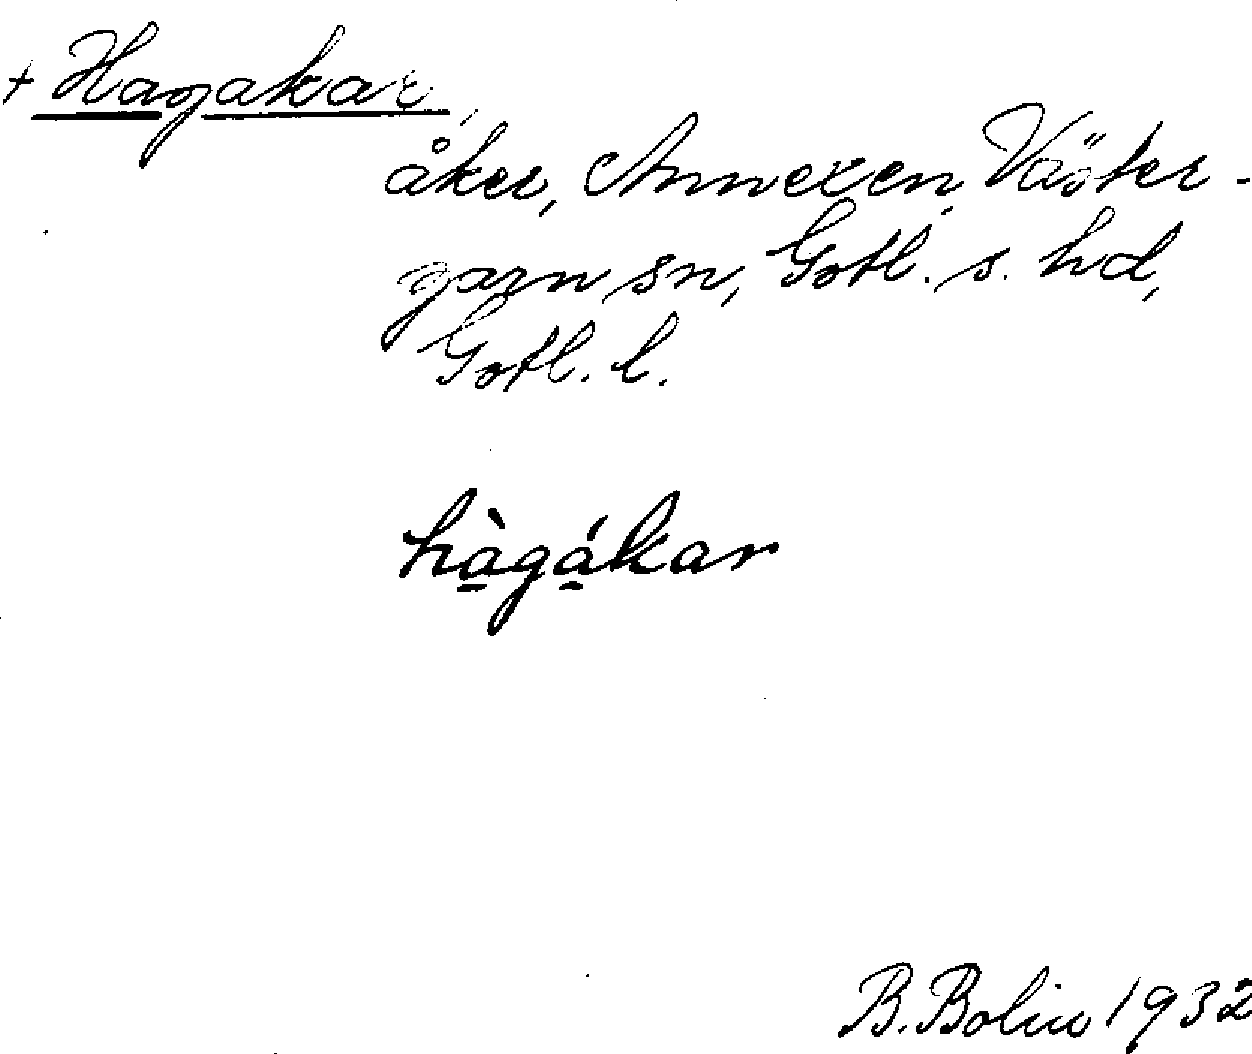 + Hagakar,
åker, Annexen, Väster-
garn sn, Gotl. s. hd,
Gotl. l.
hàgákar
B. Bolin 1932